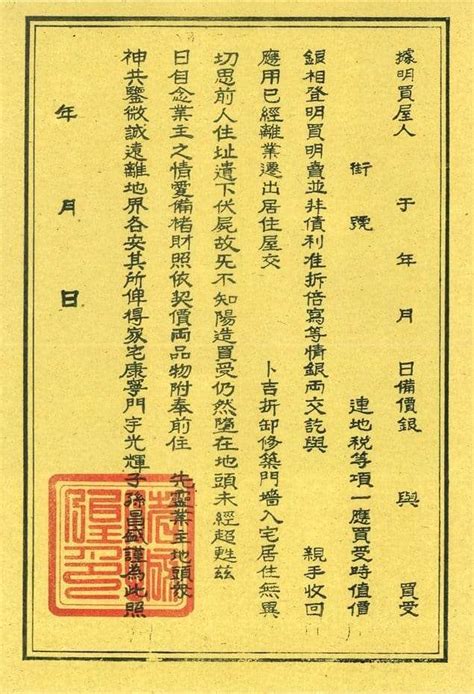 據明買屋人　于　年　月　日備價銀　與　買受
街號　連地税等項一應買受時值價
銀相登明買明賣並非債利准拆倍寫等情銀両交訖與　親手收回
應用已經離業遷出居住屋交　卜吉折卸修築門墻入宅居住無異
切思前人住址遺下伏屍故旡不知陽造買受仍然墮在地頭未經超甦兹
日自念業主之情愛備楮財照依契價両品物附奉前住　先靈業主地頭眾
神共鑒微誠遠離地界各安其所俾得家宅康寧門宇光輝子孫昌盛謹為此照
年　月　日